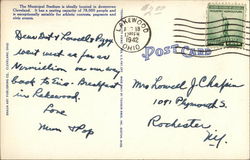 The Municipal Stadium is ideally located in downtown
Cleveland. It has a seating capacity of 78,000 people and
is exceptionally suitable for athletic contests, pageants and
civic events.
Dear Dot & Lowell & Peggy
went west as far as
Vermilion on our way
back to Erie. Breakfast
in Lakewood.
Love
Mum & Pop
LAKEWOOD
1942
OHIO
POST CARD
Mrs Lowell J. Chapin
1091 Plymouth S.
Rochester
N.Y.